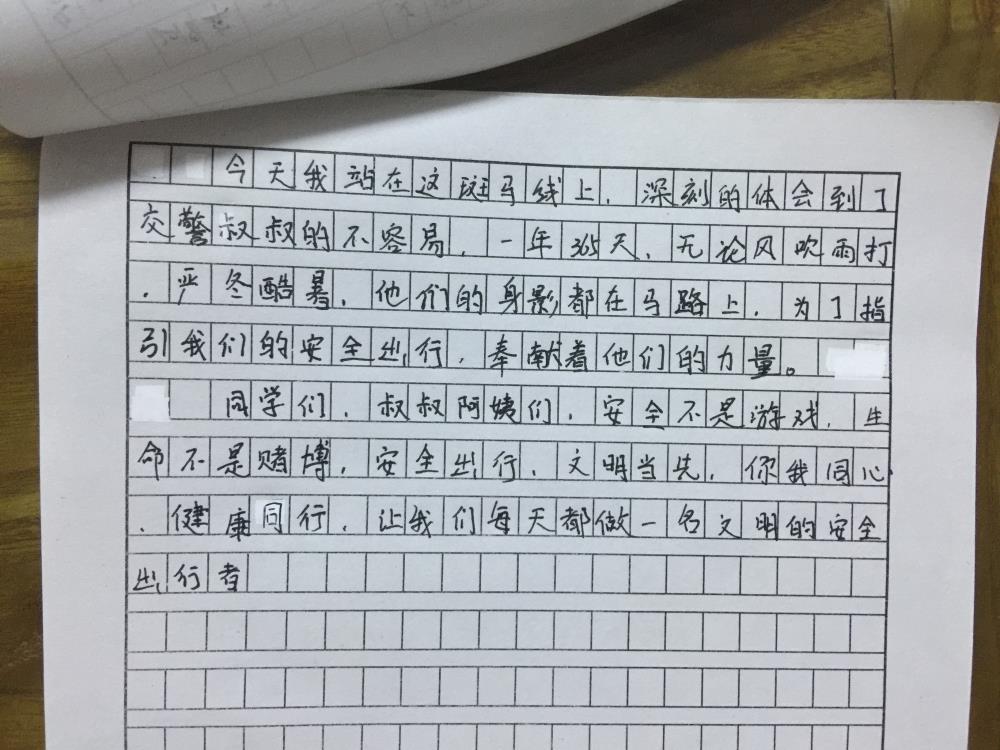 今天我站在这斑马线上，深刻的体会到了
交警叔叔的不容易，一年365天，无论风吹雨打
，严冬酷暑，他们的身影都在马路上，为了指
引我们的安全出行，奉献着他们的力量。
同学们，叔叔阿姨们，安全不是游戏，生
命不是赌博，安全出行，文明当先，你我同心
，健康同行，让我们每天都做一名文明的安全
出行者